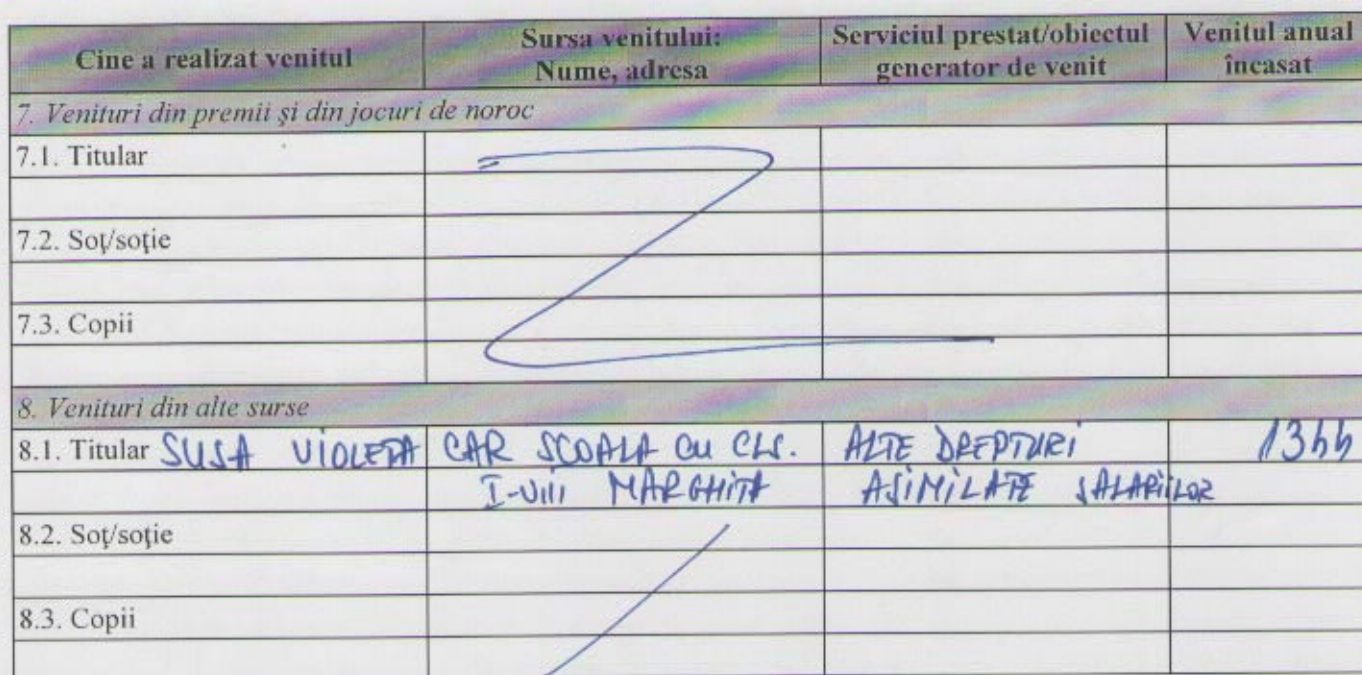 Cine a realizat venitul
Sursa venitului:
Nume, adresa
Serviciul prestat/obiectul
generator de venit
Venitul anual
încasat
7. Venituri din premii și din jocuri de noroc
7.1. Titular
7.2. Soț/soție
7.3. Copii
8. Venituri din alte surse
8.1. Titular SUSA VIOLETA CAR SCOALA CU CLS. ALTE DREPTURI
I-VIII MARGHITA ASIMILATE SALARIILOR
8.2. Soț/soție
8.3. Copii